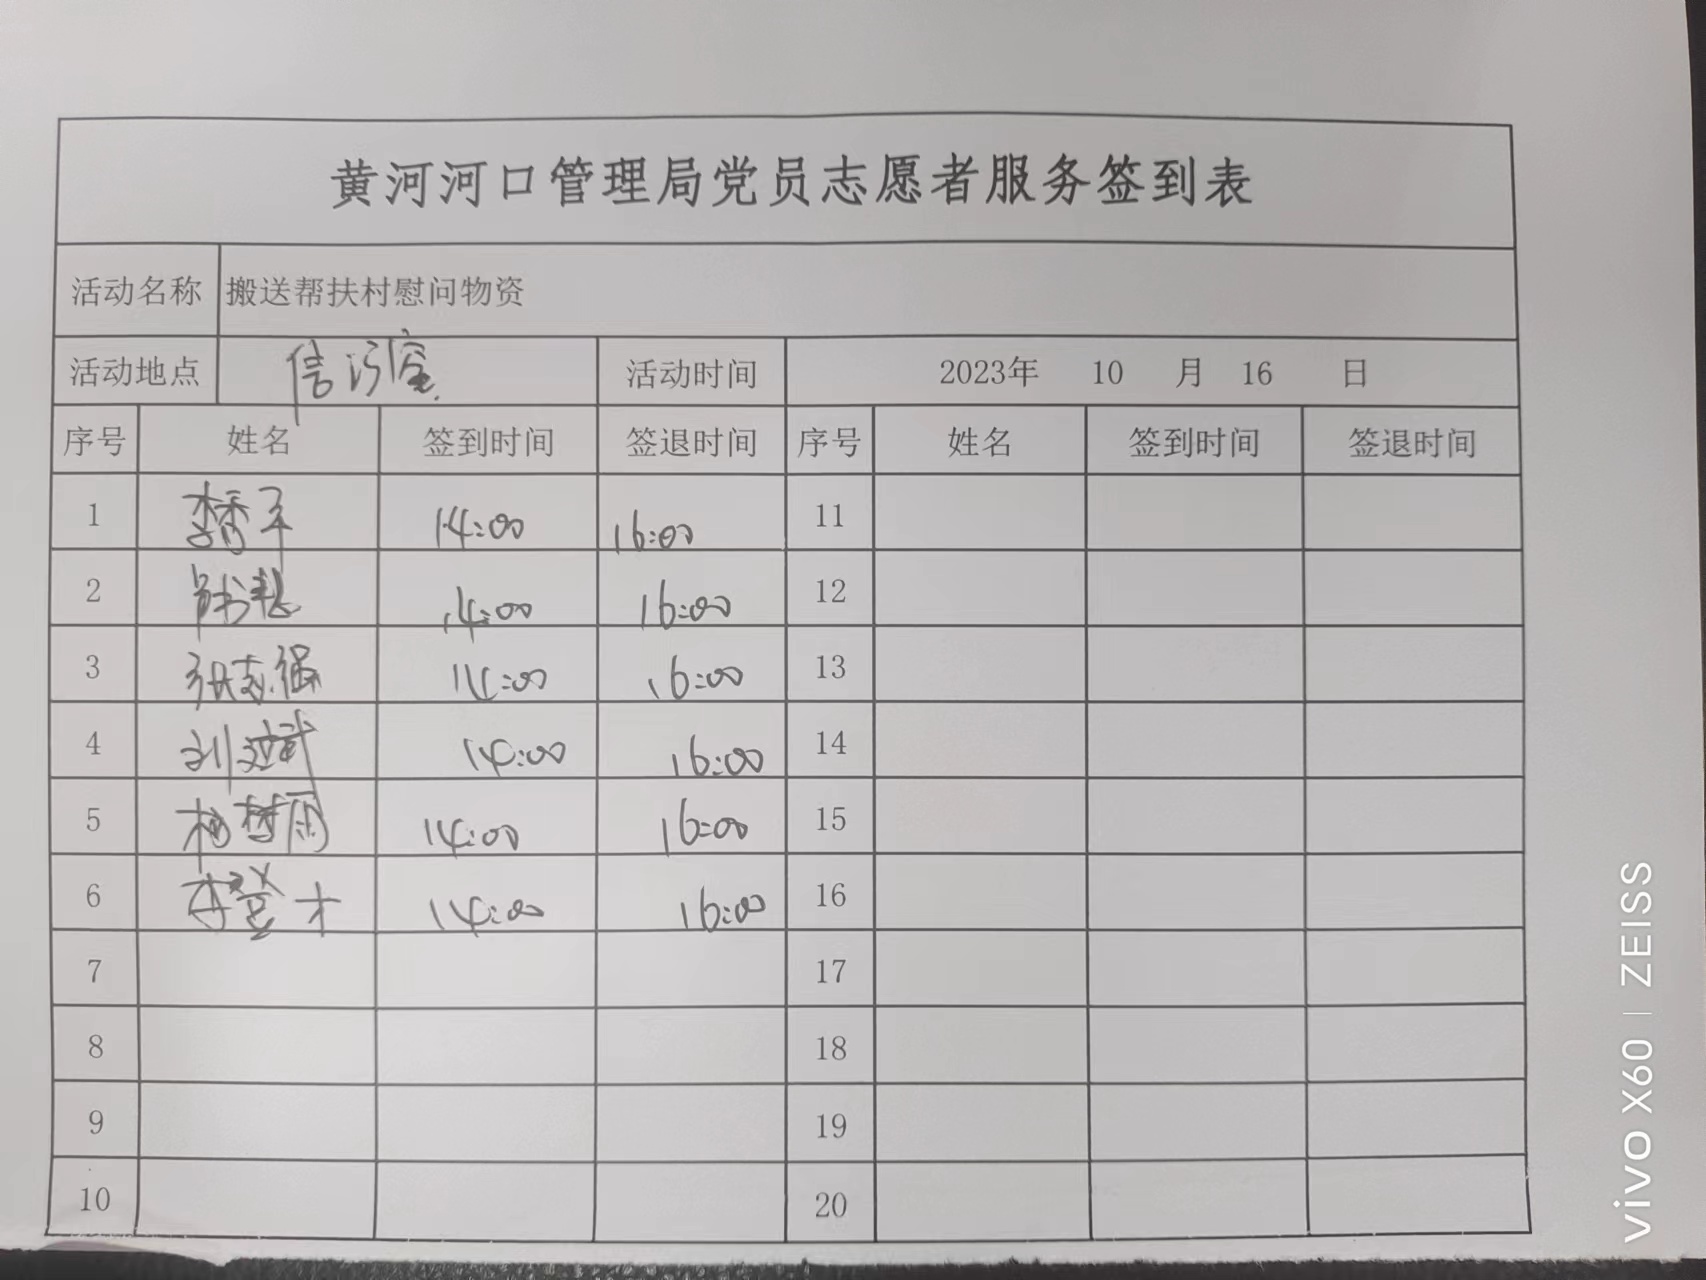 黄河河口管理局党员志愿者服务签到表
活动名称 搬送帮扶村慰问物资
活动地点 信访室 活动时间 2023年 10 月 16 日
序号 姓名 签到时间 签退时间 序号 姓名 签到时间 签退时间
1 李香平 14:00 16:00 11
2 14:00 16:00 12
3 张志强 14:00 16:00 13
4 刘斌 14:00 16:00 14
5 杨树雨 14:00 16:00 15
6 李登才 14:00 16:00 16
7 17
8 18
9 19
10 20
vivo X60 | ZEISS